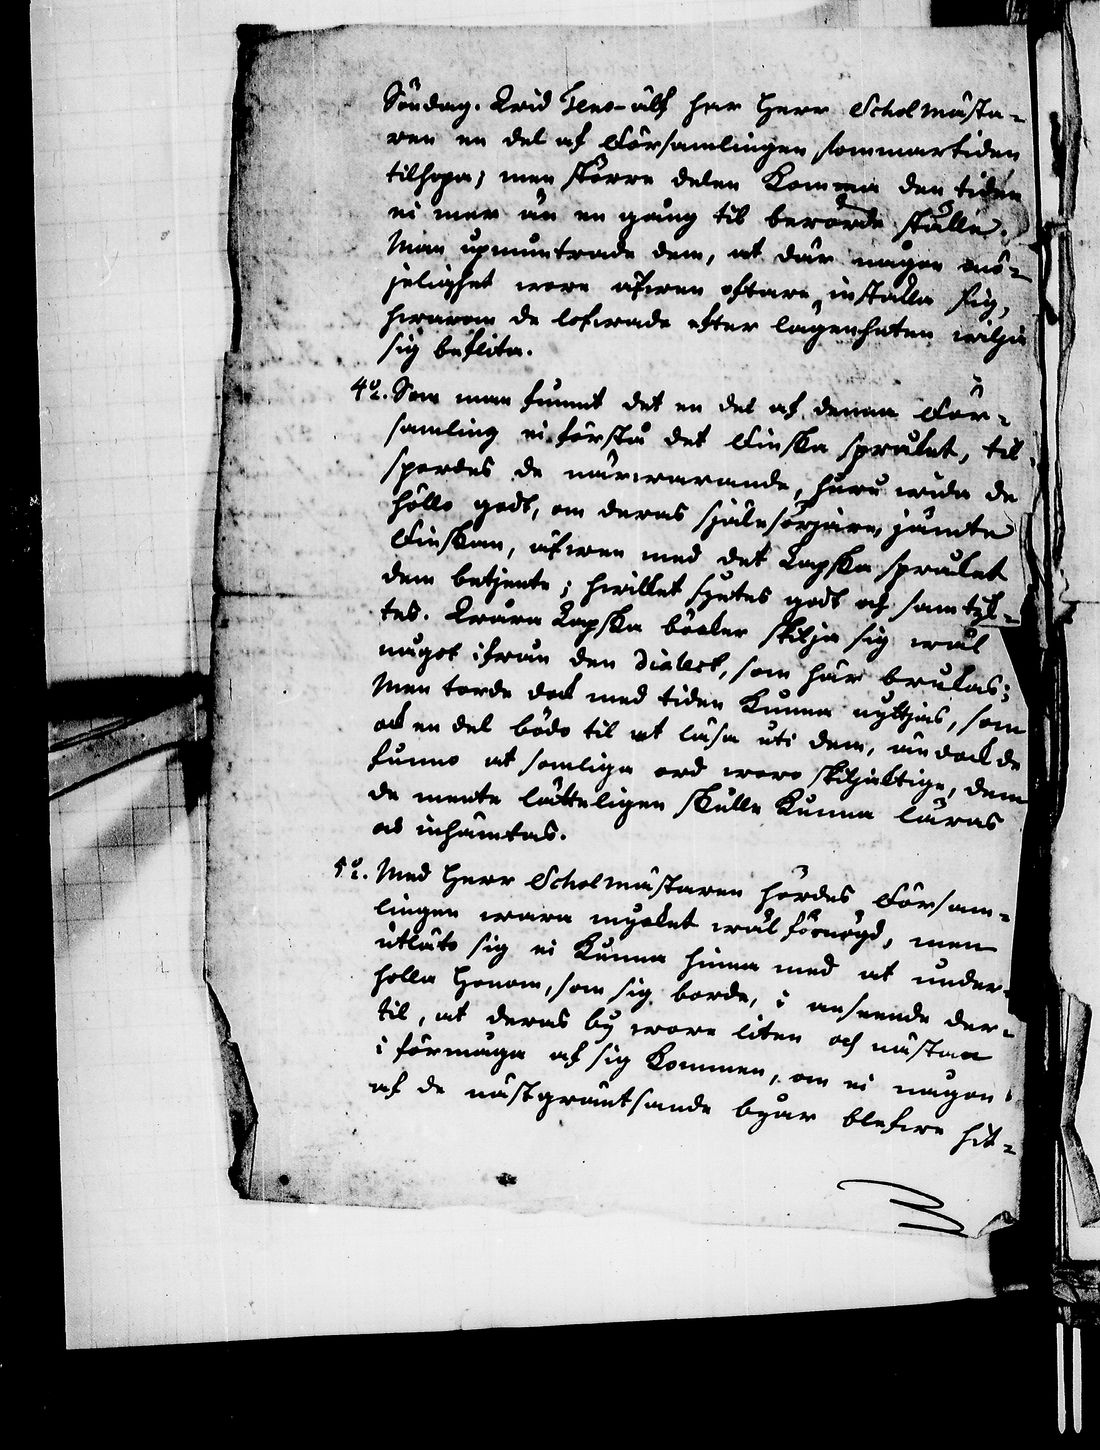 Söndag. Wid Teno-älf har Herr Scholmästa-
ren en del af Församlingen sommartiden
tilhopa; men större delen komma den tiden
ei mer än en gång til berörde ställe.
Man upmuntrade dem, at där någon mö-
jelighet wore äfwen oftare inställa sig,
hwarom de lofwade efter lägenheten wilja
sig beflita.
4º. Som man funnit det en del af denna För-
samling ei förstå det Finska språket, til-
spordes de närwarande, huru wida de
höllo godt, om deras själesörjare, jämte
Finskan, äfwen med det Lapska språket
dem betjente; hwilket syntes godt af samtyk-
tes. Wåra Lapska böcker skilja sig wäl
något ifrån den Dialect, som här brukas;
Men torde dock med tiden kunna nyttjas, som
ock en del bödo til at läsa uti dem, än dock de
funno at somliga ord woro skiljaktige, dem
de mente lätteligen skulle kunna läras
oc inhämtas.
5º. Med Herr Scholmästaren hördes Försam-
lingen wara mycket wäl förnögd, men
utläto sig ei kunna hinna med at under-
holla Honom, som sig borde, i anseende der-
til, at deras by wore liten och nästan
i förmåga af sig kommen, om ei någon
af de nästgräntsande byar blefwe hit-